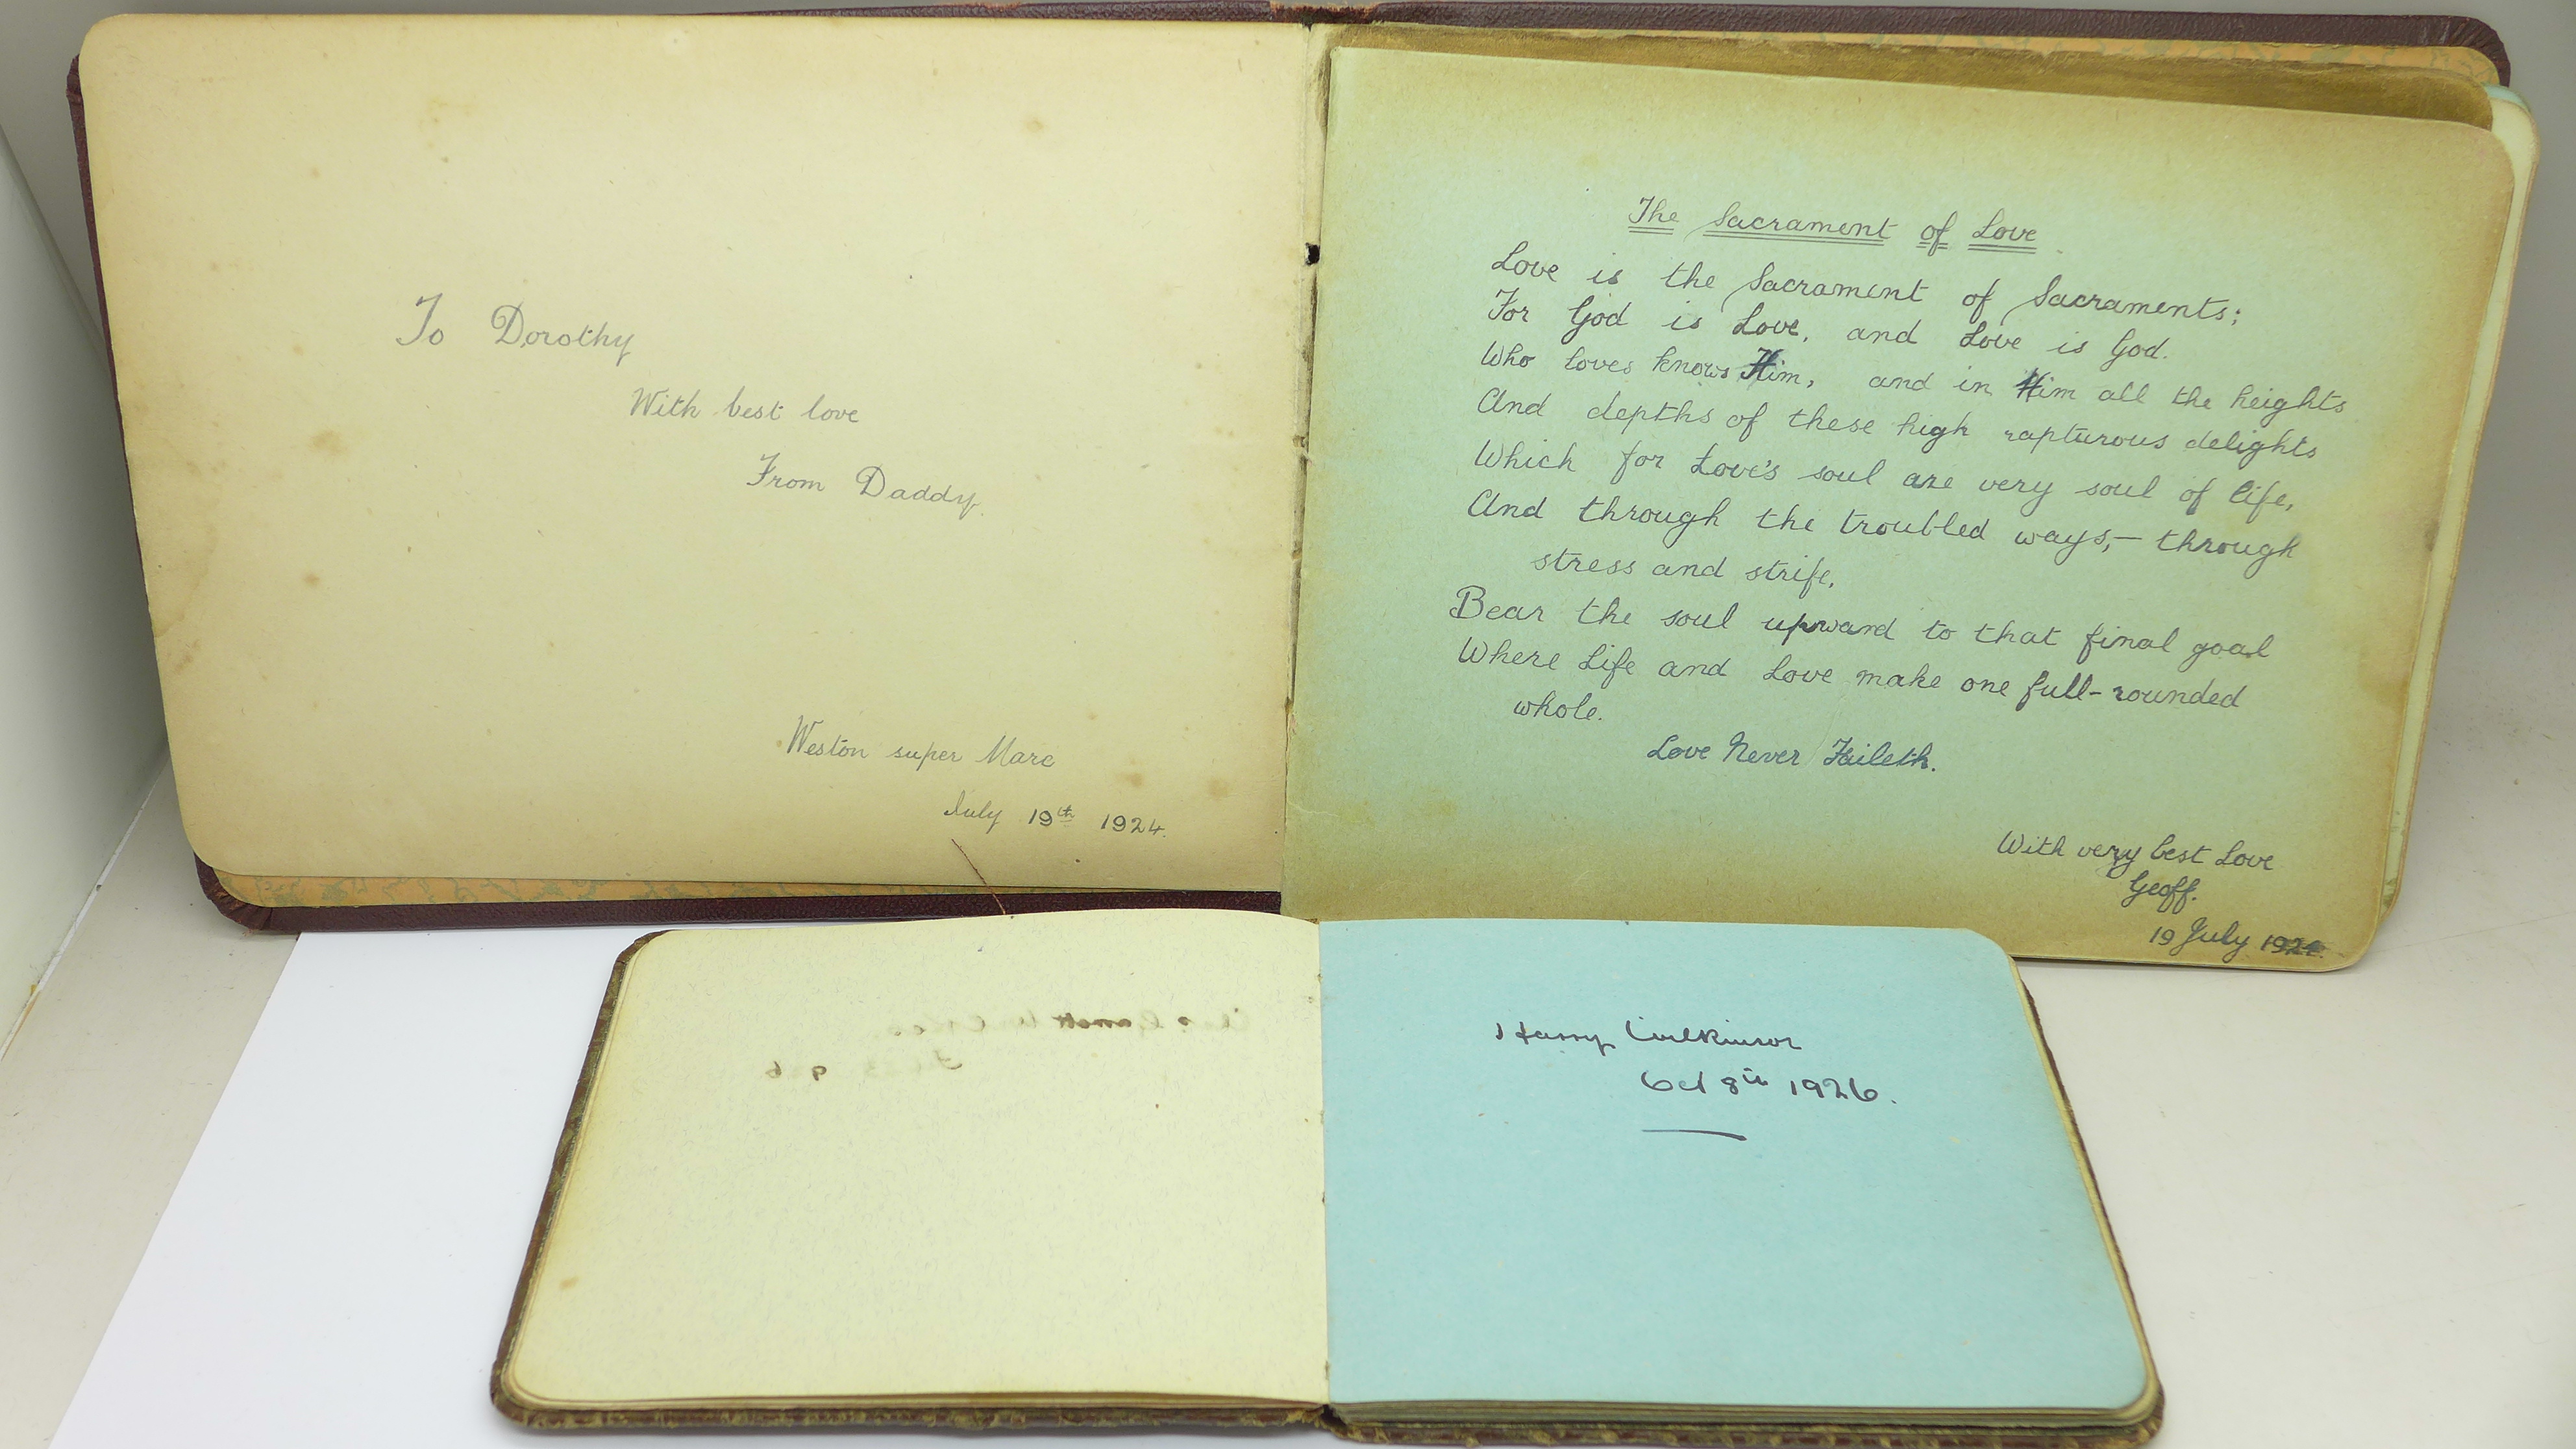 To Dorothy
With best love
From Daddy.
Weston super Mare
July 19th 1924.
The Sacrament of Love
Love is the Sacrament of Sacraments;
For God is Love, and Love is God.
Who loves knows Him, and in Him all the heights
And depths of these high rapturous delights
Which for Love's soul are very soul of life,
And through the troubled ways,— through
stress and strife,
Bear the soul upward to that final goal
Where Life and Love make one full-rounded
whole.
Love Never Faileth.
With very best Love
Geoff.
19 July 1924.
Harry Wilkinson
Oct 8th 1926.